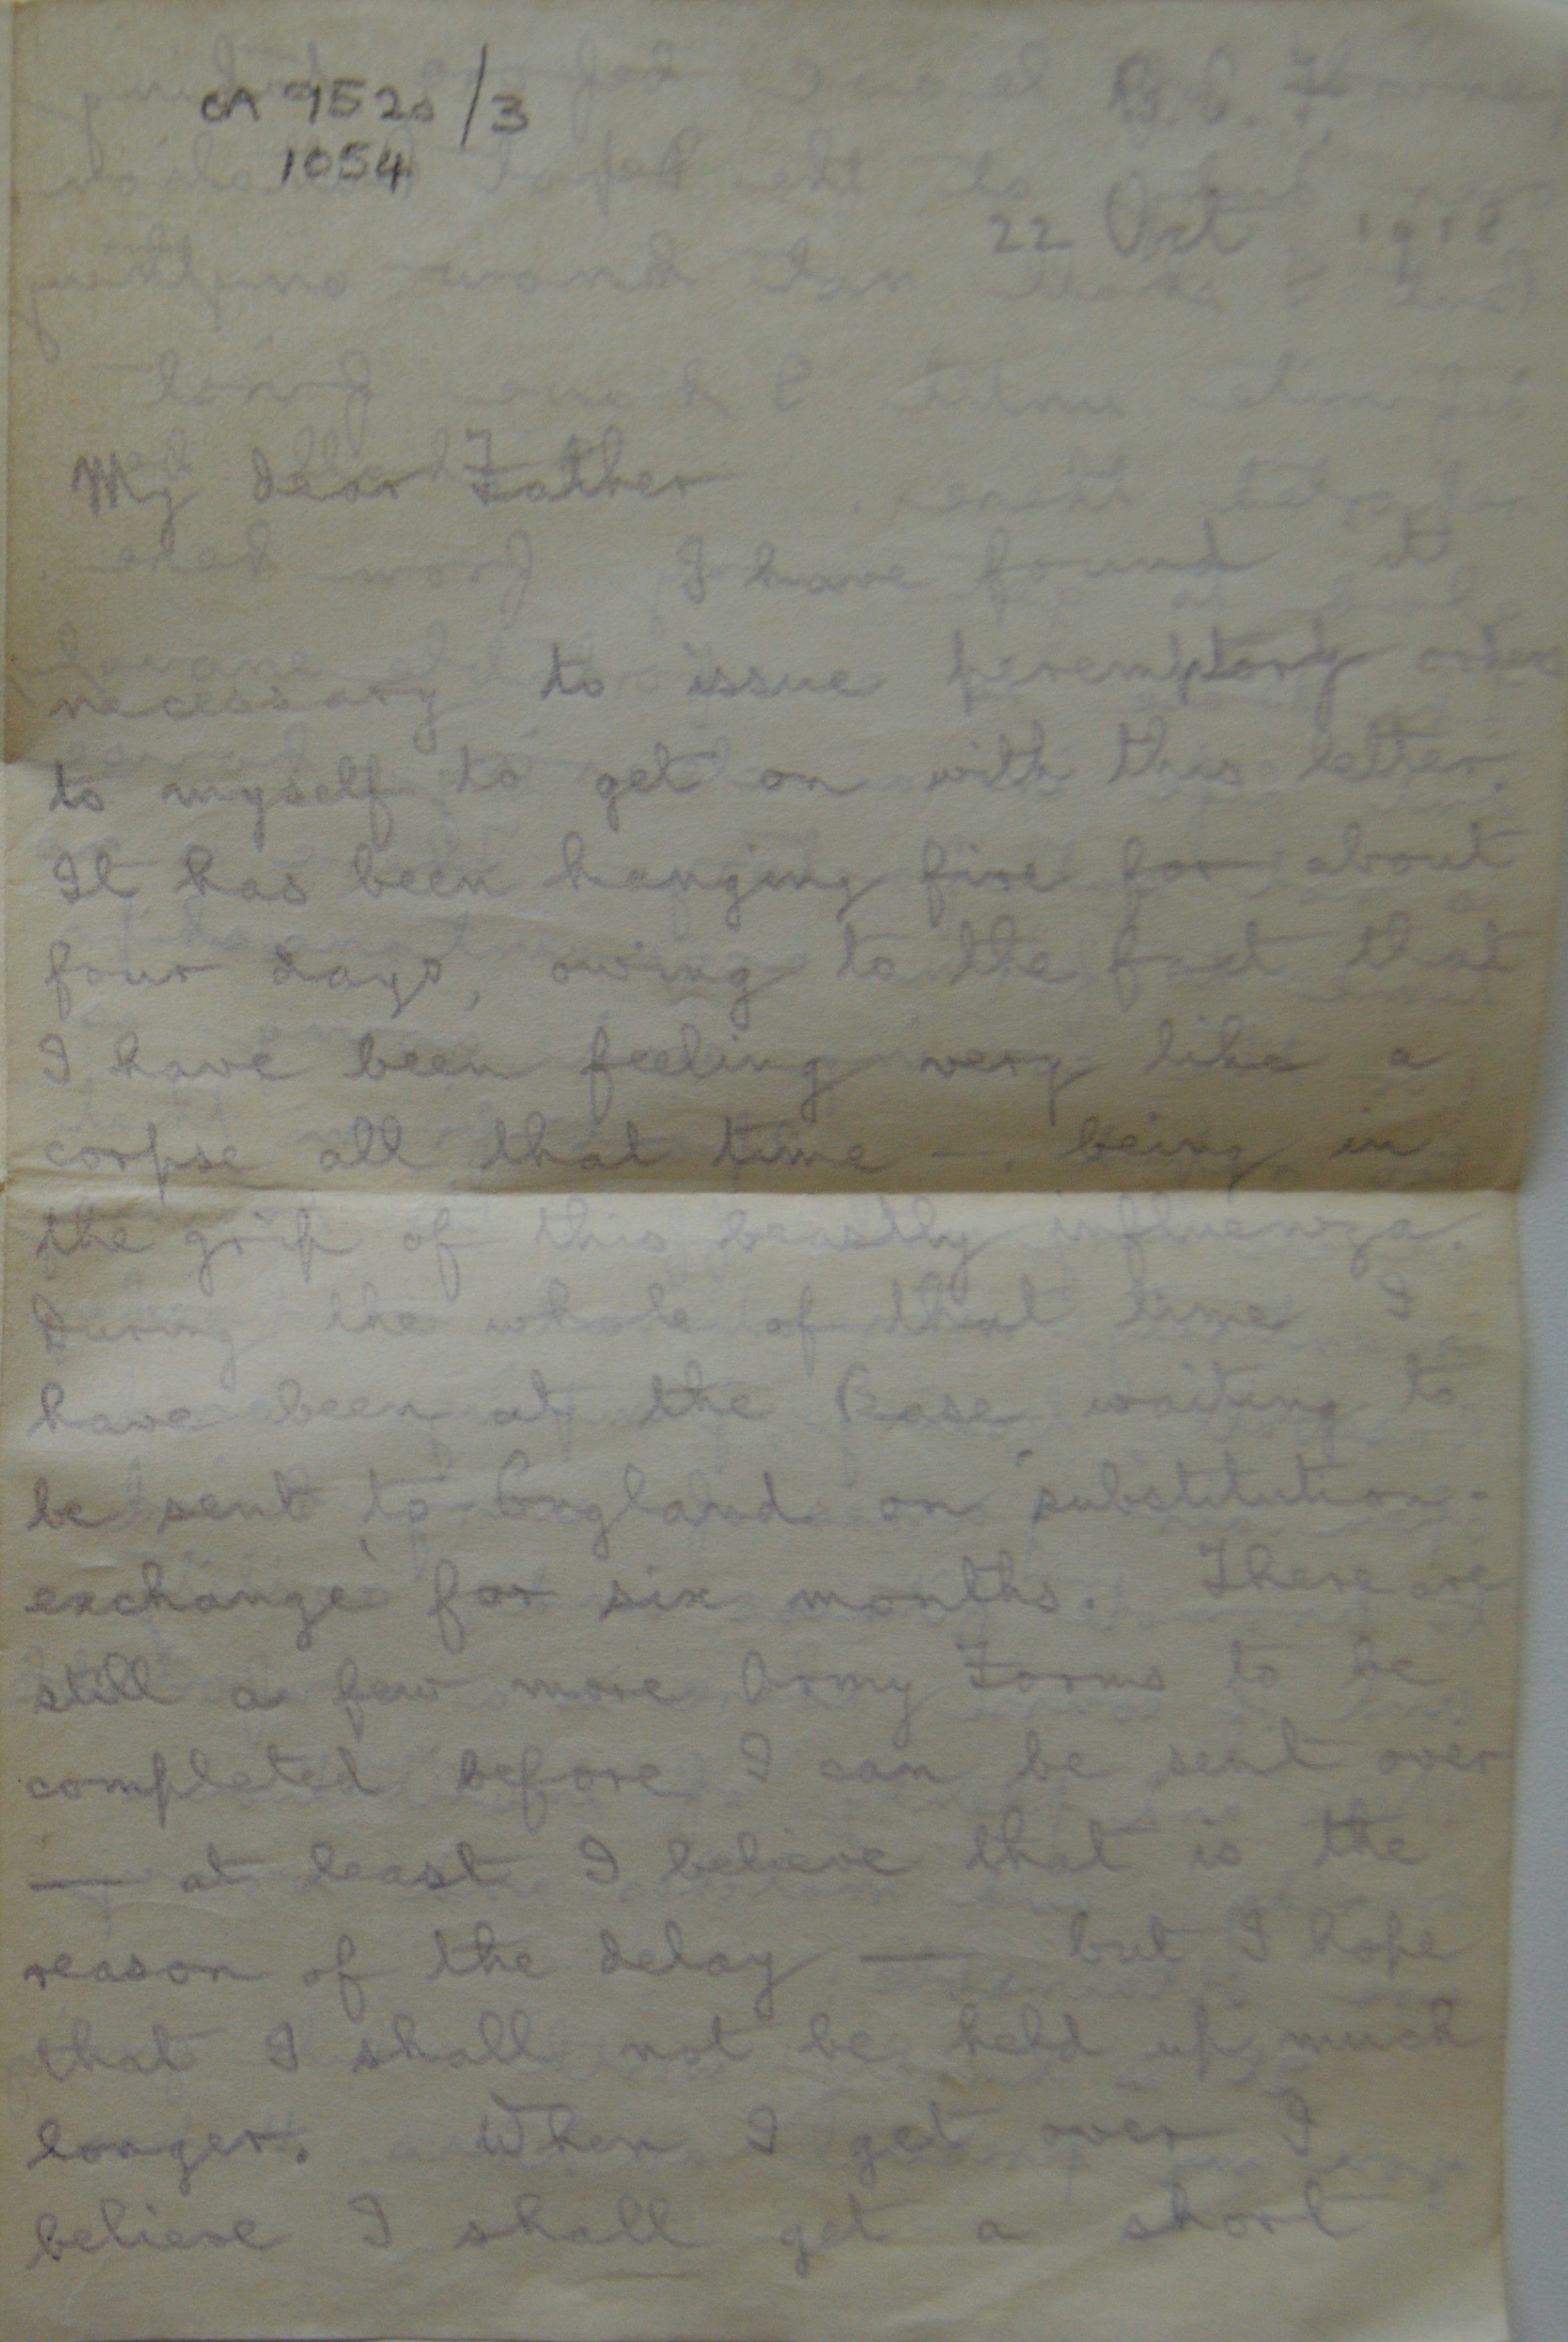 CA 9520/3
1054
B.E.F. France
22 Oct 1918
My dear Father
I have found it
necessary to issue peremptory orders
to myself to get on with this letter.
It has been hanging fire for about
four days, owing to the fact that
I have been feeling very like a
corpse all that time — being in
the grip of this beastly influenza.
During the whole of that time I
have been at the Base waiting to
be sent to England on "substitution-
exchange" for six months. There are
still a few more Army Forms to be
completed before I can be sent over
— at least I believe that is the
reason of the delay — but I hope
that I shall not be held up much
longer. When I get over I
believe I shall get a short